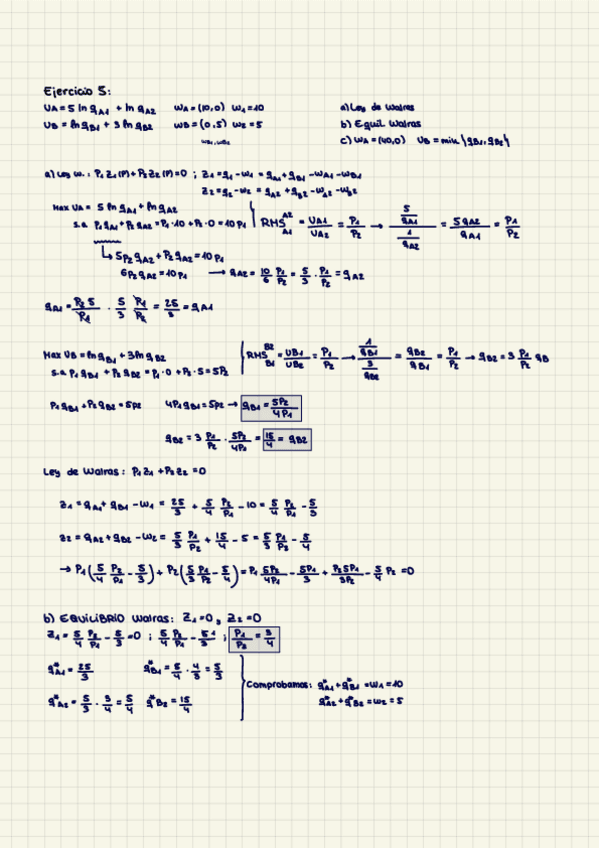 Ejercicio 5:
UA = 5 ln qA1 + ln qA2 wA = (10,0) w1 = 10 a) Ley de Walras
UB = ln qB1 + 3 ln qB2 wB = (0,5) w2 = 5 b) Equil Walras
wB1, wB2 c) wA = (40,0) UB = min {qB1, qB2}
a) Ley W.: P1 Z1(P) + P2 Z2(P) = 0 ; Z1 = q1 - w1 = qA1 + qB1 - wA1 - wB1
Z2 = q2 - w2 = qA2 + qB2 - wA2 - wB2
Max UA = 5 ln qA1 + ln qA2
s.a P1 qA1 + P2 qA2 = P1·10 + P2·0 = 10 P1 RMS A2 A1 = UA1/UA2 = P1/P2 → (5/qA1)/(1/qA2) = 5qA2/qA1 = P1/P2
↳ 5P2 qA2 + P2 qA2 = 10 P1
6P2 qA2 = 10 P1 → qA2 = 10/6 P1/P2 = 5/3 · P1/P2 = qA2
qA1 = P2 5/P1 · 5/3 P1/P2 = 25/3 = qA1
Max UB = ln qB1 + 3 ln qB2
s.a P1 qB1 + P2 qB2 = P1·0 + P2·5 = 5P2 RMS B2 B1 = UB1/UB2 = P1/P2 → (1/qB1)/(3/qB2) = qB2/qB1 = P1/P2 → qB2 = 3 P1/P2 qB
P1 qB1 + P2 qB2 = 5P2 4P1 qB1 = 5P2 → qB1 = 5P2/4P1
qB2 = 3 P1/P2 · 5P2/4P1 = 15/4 = qB2
Ley de Walras: P1 Z1 + P2 Z2 = 0
Z1 = qA1 + qB1 - w1 = 25/3 + 5/4 P2/P1 - 10 = 5/4 P2/P1 - 5/3
Z2 = qA2 + qB2 - w2 = 5/3 P1/P2 + 15/4 - 5 = 5/3 P1/P2 - 5/4
→ P1 (5/4 P2/P1 - 5/3) + P2 (5/3 P1/P2 - 5/4) = P1 5P2/4P1 - 5P1/3 + P2 5P1/3P2 - 5/4 P2 = 0
b) EQUILIBRIO Walras: Z1 = 0, Z2 = 0
Z1 = 5/4 P2/P1 - 5/3 = 0 ; 5/4 P2/P1 - 5/3 ; P1/P2 = 3/4
q*A1 = 25/3 q*B1 = 5/4 · 4/3 = 5/3
Comprobamos: q*A1 + q*B1 = w1 = 10
q*A2 = 5/3 · 3/4 = 5/4 q*B2 = 15/4
q*A2 + q*B2 = w2 = 5